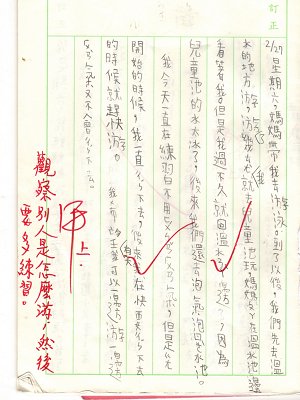 訂正
2/27 星期六,媽媽帶我去游泳。到了以後,我們先去溫
水的地方游,游完我就去兒童池玩媽媽在溫水池邊
看著我。但是我過不久就回溫水邊了,因為
兒童池的水太冰了,後來我們還去泡氣泡溫水池。
我今天一直在練習
但是
開始的時候,我一直往下去,後來在快要往下去
的時候就趕快游。
我希望可以一邊游一邊
又不會往下去。
甲上
觀察別人是怎麼游,然後
要多練習。